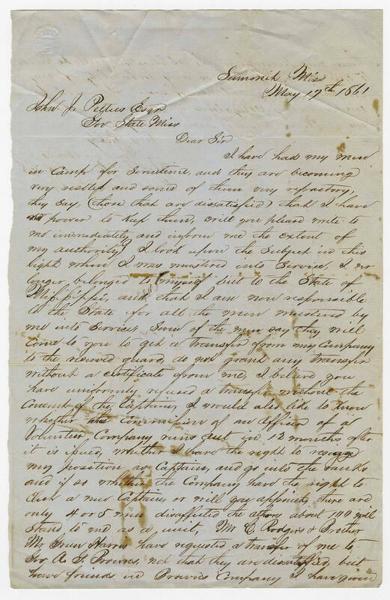 Summit Miss
May 17th 1861
John J. Pettus Esqr
Gov State Miss
Dear Sir
I have had my men
in Camp for Sometime, and they are becoming
very restless and some of them very refractory,
they Say (those that are dissatisfied) that I have
no power to keep them, will you please write to
me immediately and inform me the extent of
my authority, I look upon the Subject in this
light, when I was mustered into Service, I no
longer belonged to myself but to the State of
Mississippi, and that I am now responsible
to the State for all the men mustered by
me into Service, Some of the men say they will
come to you to get a transfer from my Company
to the do not grant any transfer
without a certificate from me, I believe you
have uniformly refused a transfer without the
Consent of the Captains, I would also like to know
whether the commission of an officer of a
Volunteer Company runs out in 12 months after
it is issued, whether I have the right to resign
my position as Captain, and go into the ranks
and if so whether the Company have the right to
elect a new Captain or will you appoint, there are
only 4 or 5 men disaffected the others about 100 will
Stand to me as a unit, Mr C Rodgers & Brother
Mr Harris have requested a transfer of me to
Gov A. G. Browns, not that they are dissatisfied, but
have friends in Browns Company I have given